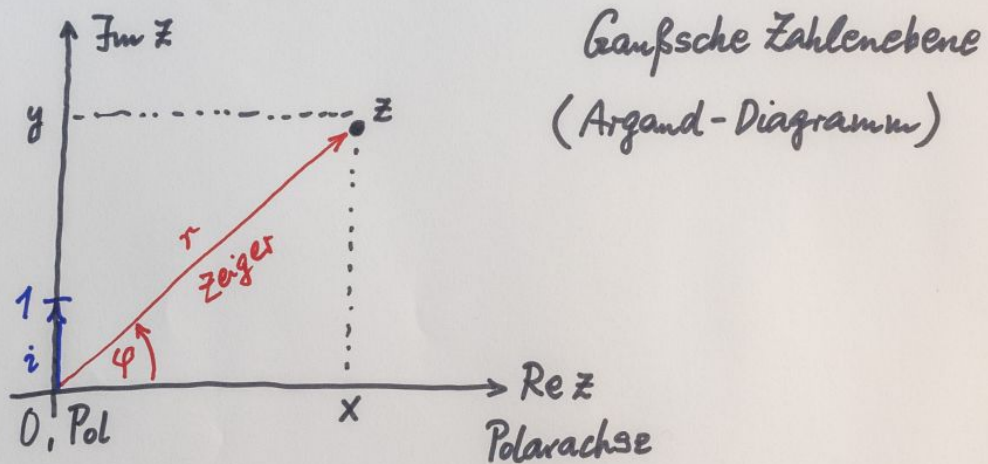 Im z
Gaußsche Zahlenebene
(Argand-Diagramm)
y
z
r
Zeiger
1
i
φ
0, Pol
x
Re z
Polarachse